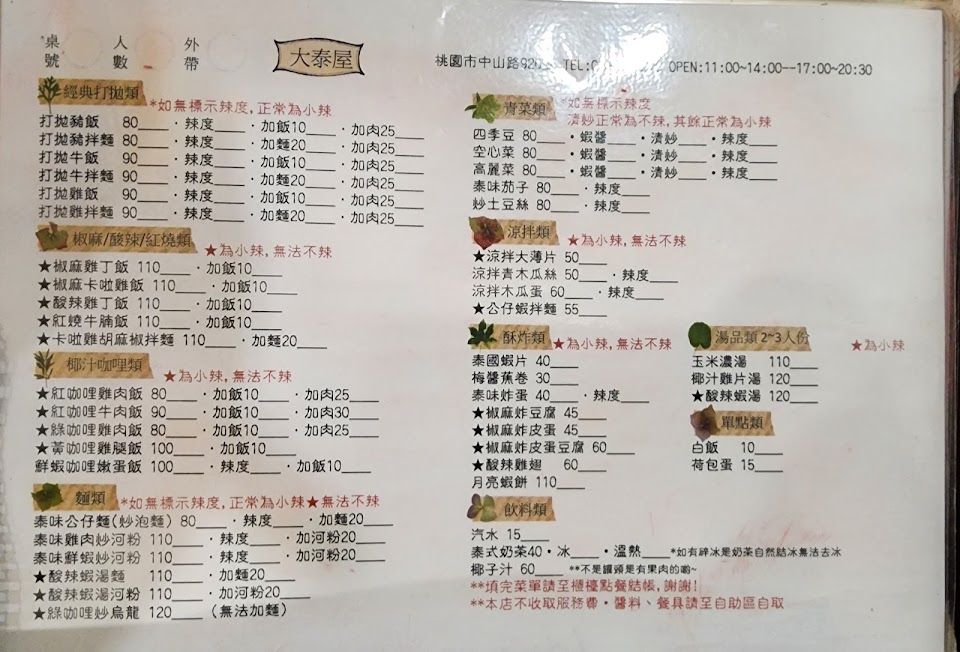 桌號 人數 外帶
大泰屋
桃園市中山路920 TEL:0 OPEN:11:00~14:00--17:00~20:30
經典打拋類 *如無標示辣度,正常為小辣
打拋豬飯 80____·辣度____·加飯10____·加肉25____
打拋豬拌麵 80____·辣度____·加麵20____·加肉25____
打拋牛飯 90____·辣度____·加飯10____·加肉25____
打拋牛拌麵 90____·辣度____·加麵20____·加肉25____
打拋雞飯 90____·辣度____·加飯10____·加肉25____
打拋雞拌麵 90____·辣度____·加麵20____·加肉25____
椒麻/酸辣/紅燒類 ★為小辣,無法不辣
★椒麻雞丁飯 110____·加飯10____
★椒麻卡啦雞飯 110____·加飯10____
★酸辣雞丁飯 110____·加飯10____
★紅燒牛腩飯 110____·加飯10____
★卡啦雞胡麻椒拌麵 110____·加麵20____
椰汁咖哩類 ★為小辣,無法不辣
★紅咖哩雞肉飯 80____·加飯10____·加肉25____
★紅咖哩牛肉飯 90____·加飯10____·加肉30____
★綠咖哩雞肉飯 80____·加飯10____·加肉25____
★黃咖哩雞腿飯 100____·加飯10____
鮮蝦咖哩嫩蛋飯 100____·辣度____·加飯10____
麵類 *如無標示辣度,正常為小辣★無法不辣
泰味公仔麵(炒泡麵) 80____·辣度____·加麵20____
泰味雞肉炒河粉 110____·辣度____·加河粉20____
泰味鮮蝦炒河粉 110____·辣度____·加河粉20____
★酸辣蝦湯麵 110____·加麵20____
★酸辣蝦湯河粉 110____·加河粉20____
★綠咖哩炒烏龍 120____(無法加麵)
青菜類 *如無標示辣度
清炒正常為不辣,其餘正常為小辣
四季豆 80____·蝦醬____·清炒____·辣度____
空心菜 80____·蝦醬____·清炒____·辣度____
高麗菜 80____·蝦醬____·清炒____·辣度____
泰味茄子 80____·辣度____
炒土豆絲 80____·辣度____
涼拌類 ★為小辣,無法不辣
★涼拌大薄片 50____
涼拌青木瓜絲 50____·辣度____
涼拌木瓜蛋 60____·辣度____
★公仔蝦拌麵 55____
酥炸類 ★為小辣,無法不辣
泰國蝦片 40____
梅醬蕉卷 30____
泰味炸蛋 40____·辣度____
★椒麻炸豆腐 45____
★椒麻炸皮蛋 45____
★椒麻炸皮蛋豆腐 60____
★酸辣雞翅 60____
月亮蝦餅 110____
湯品類 2~3人份 ★為小辣
玉米濃湯 110____
椰汁雞片湯 120____
★酸辣蝦湯 120____
單點類
白飯 10____
荷包蛋 15____
飲料類
汽水 15____
泰式奶茶40·冰____·溫熱____*如有碎冰是奶茶自然結冰無法去冰
椰子汁 60____ **不是罐頭是有果肉的喲~
**填完菜單請至櫃檯點餐結帳,謝謝!
**本店不收取服務費·醬料、餐具請至自助區自取